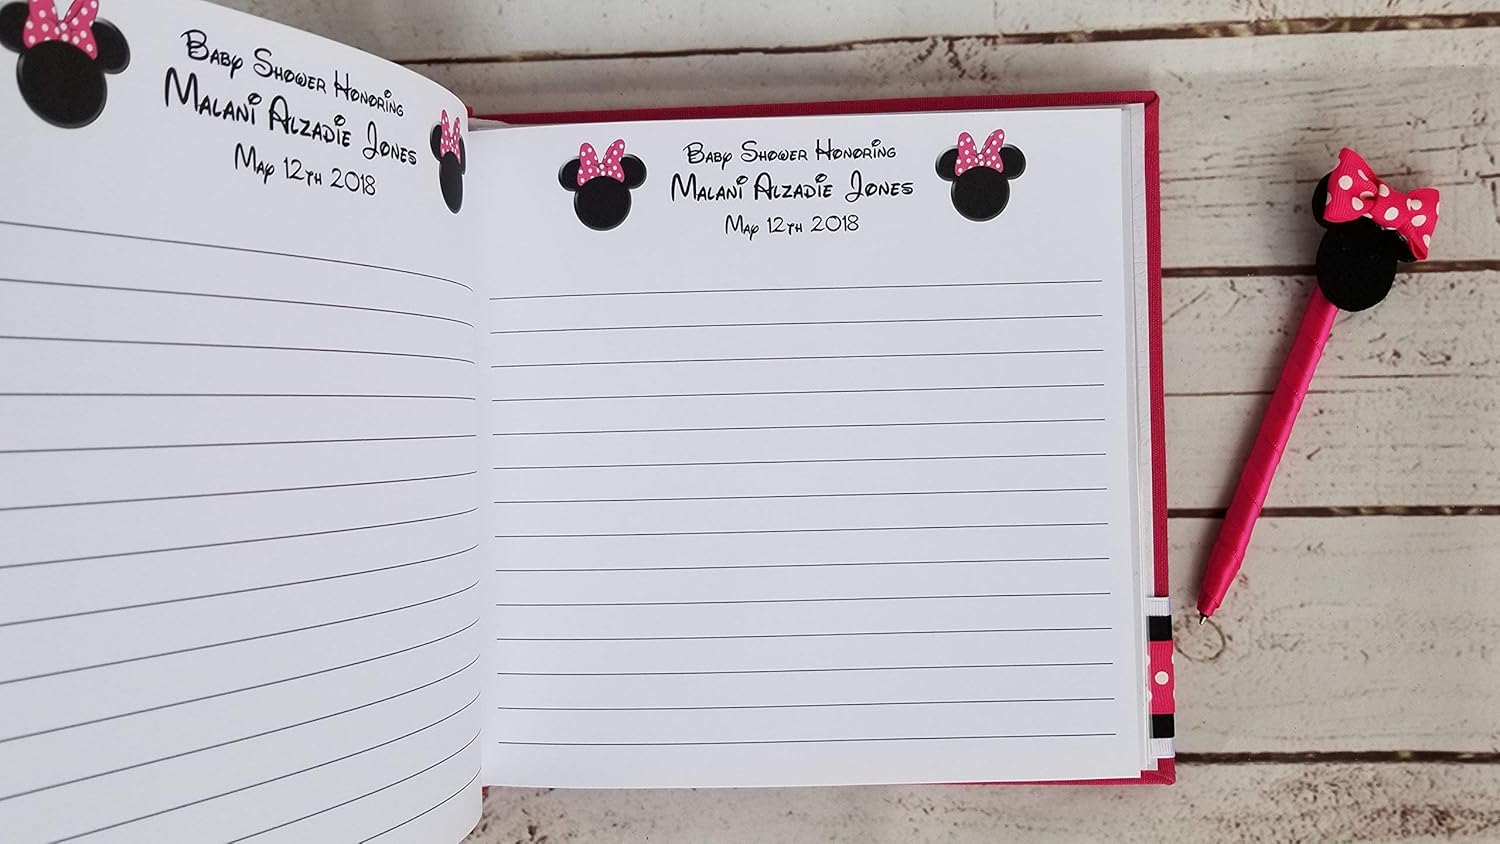 Baby Shower Honoring
Malani Alzadie Jones
May 12th 2018
Baby Shower Honoring
Malani Alzadie Jones
May 12th 2018